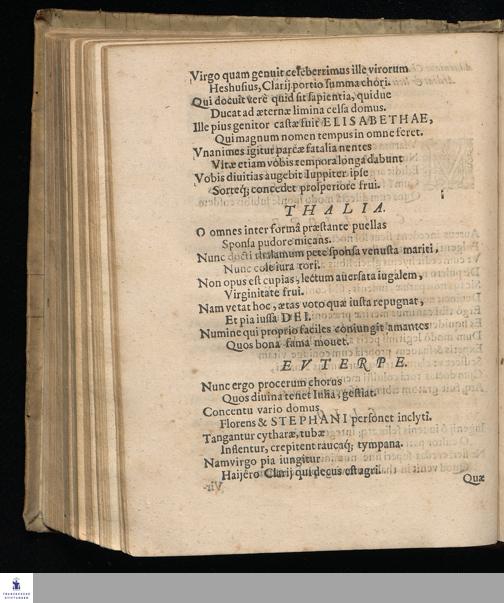 Virgo quam genuit celeberrimus ille virorum
Heshusius, Clarij portio summa chori.
Qui docuit verè quid sit sapientia, quidue
Ducat ad æternæ limina celsa domus.
Ille pius genitor castæ fuit ELISABETHAE,
Qui magnum nomen tempus in omne feret.
Vnanimes igitur parcæ fatalia nentes
Vitæ etiam vobis tempora longa dabunt
Vobis diuitias augebit Iuppiter ipse
Sorteq; concedet prosperiore frui.
THALIA.
O omnes inter formâ præstante puellas
Sponsa pudore micans.
Nunc docti thalamum pete sponsa venusta mariti,
Nunc cole iura tori.
Non opus est cupias, lectum auersata iugalem,
Virginitate frui.
Nam vetat hoc, ætas voto quæ iusta repugnat,
Et pia iussa DEI.
Numine qui proprio faciles coniungit amantes
Quos bona fama mouet.
EVTERPE.
Nunc ergo procerum chorus
Quos diuina tenet Iulia, gestiat.
Concentu vario domus
Florens & STEPHANI personet inclyti.
Tangantur cytharæ, tubæ
Inflentur, crepitent raucaq; tympana.
Nam virgo pia iungitur
Clarij qui decus est agri.
Quæ
FRANCKESCHE
STIFTUNGEN